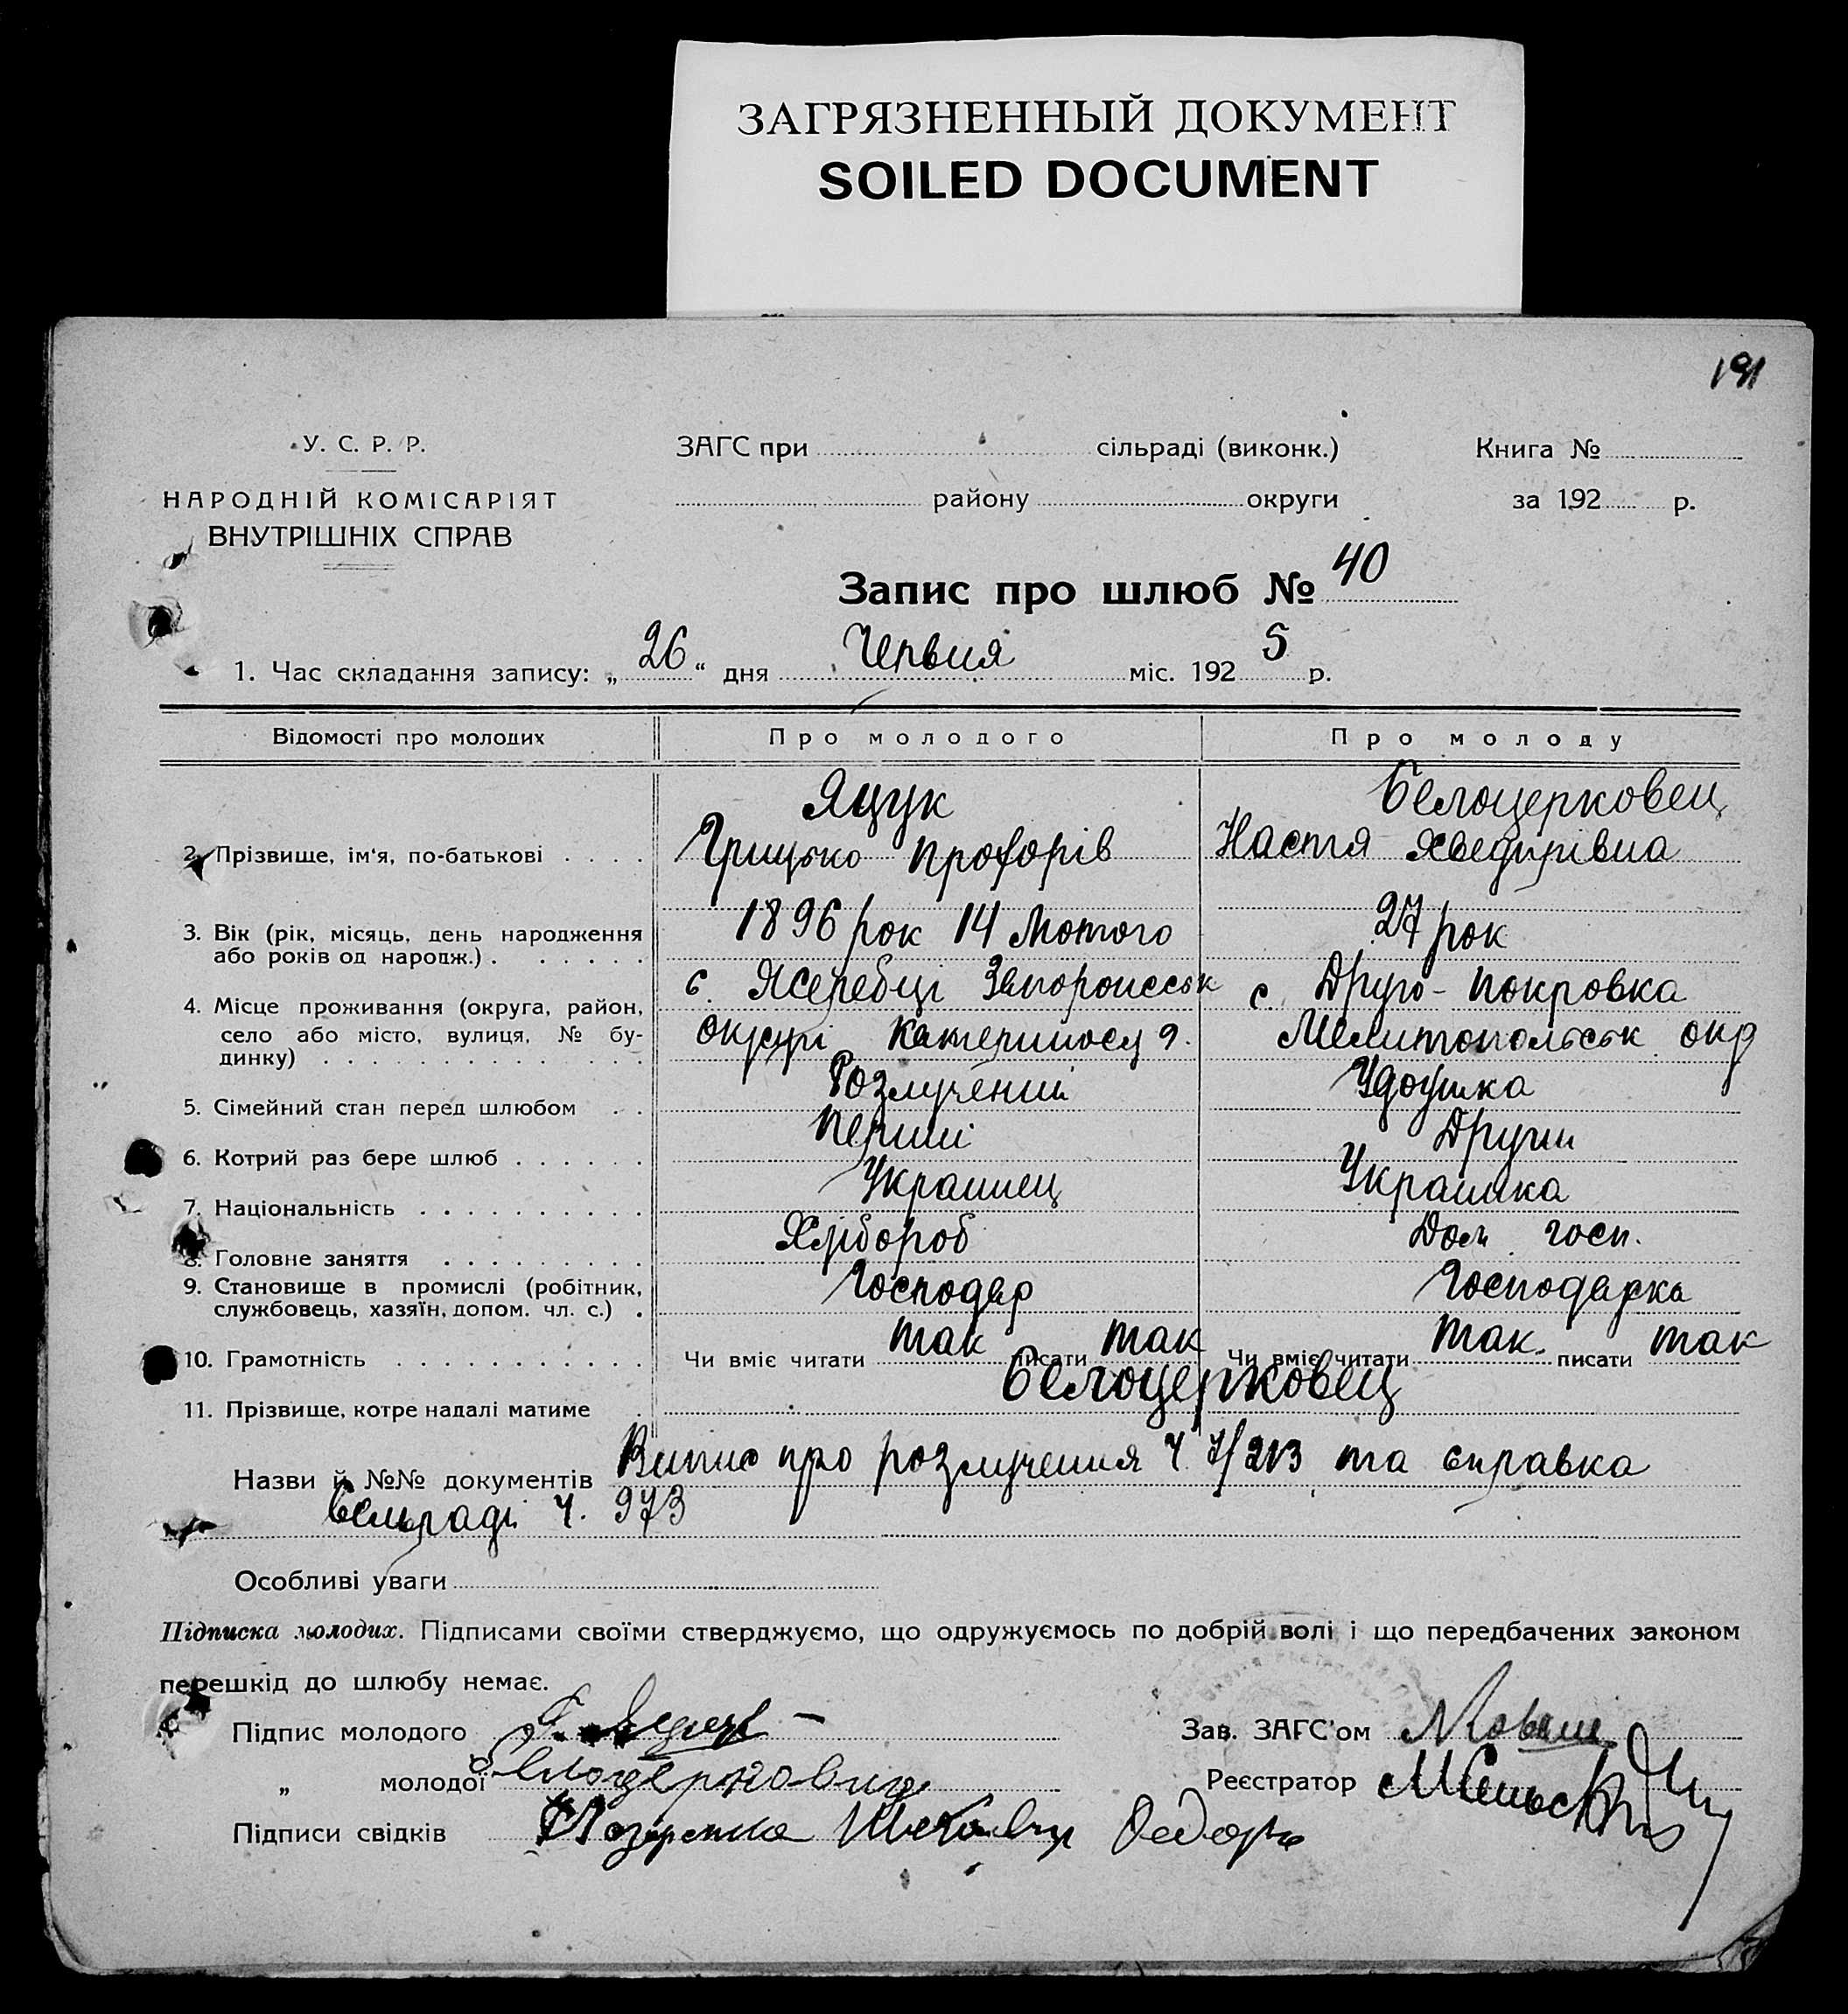 ЗАГРЯЗНЕННЫЙ ДОКУМЕНТ
SOILED DOCUMENT
191
У. С. Р. Р.
НАРОДНІЙ КОМІСАРІЯТ
ВНУТРІШНІХ СПРАВ
ЗАГС при сільраді (виконк.)
району округи
Книга №
за 192 р.
Запис про шлюб № 40
1. Час складання запису: „ 26 “ дня Червня міс. 192 5 р.
Відомості про молодих Про молодого Про молоду
Яцук Белоцерковец
2. Прізвище, ім'я, по-батькові . . . . Грицько Прохорів Настя Хведирівна
3. Вік (рік, місяць, день народження 1896 рок 14 Лютого 27 рок
або років од народж.) . . . . . .
4. Місце проживання (округа, район, с. Жеребці Запорожськ с. Друго-Покровка
село або місто, вулиця, № бу- округі Катериносл г. Мелитопольськ окр
динку) . . . . . . . . . . . .
5. Сімейний стан перед шлюбом . . Розлучений Удоушка
6. Котрий раз бере шлюб . . . . . . Перший Другий
7. Національність . . . . . . . . . . Украинец Украинка
8. Головне заняття . . . . . . . . . Хлібороб Дом. госп.
9. Становище в промислі (робітник, Господар Господарка
службовець, хазяїн, допом. чл. с.) .
10. Грамотність . . . . . . . . . . . Чи вміє читати так писати так Чи вміє читати так писати так
11. Прізвище, котре надалі матиме Белоцерковец
Назви й №№ документів Випис про розлучення Ч. 7/213 та справка
сельраді Ч. 973
Особливі уваги
Підписка молодих. Підписами своїми стверджуємо, що одружуємось по добрій волі і що передбачених законом
перешкід до шлюбу немає.
Підпис молодого Зав. ЗАГС'ом
„ молодої Реєстратор
Підписи свідків